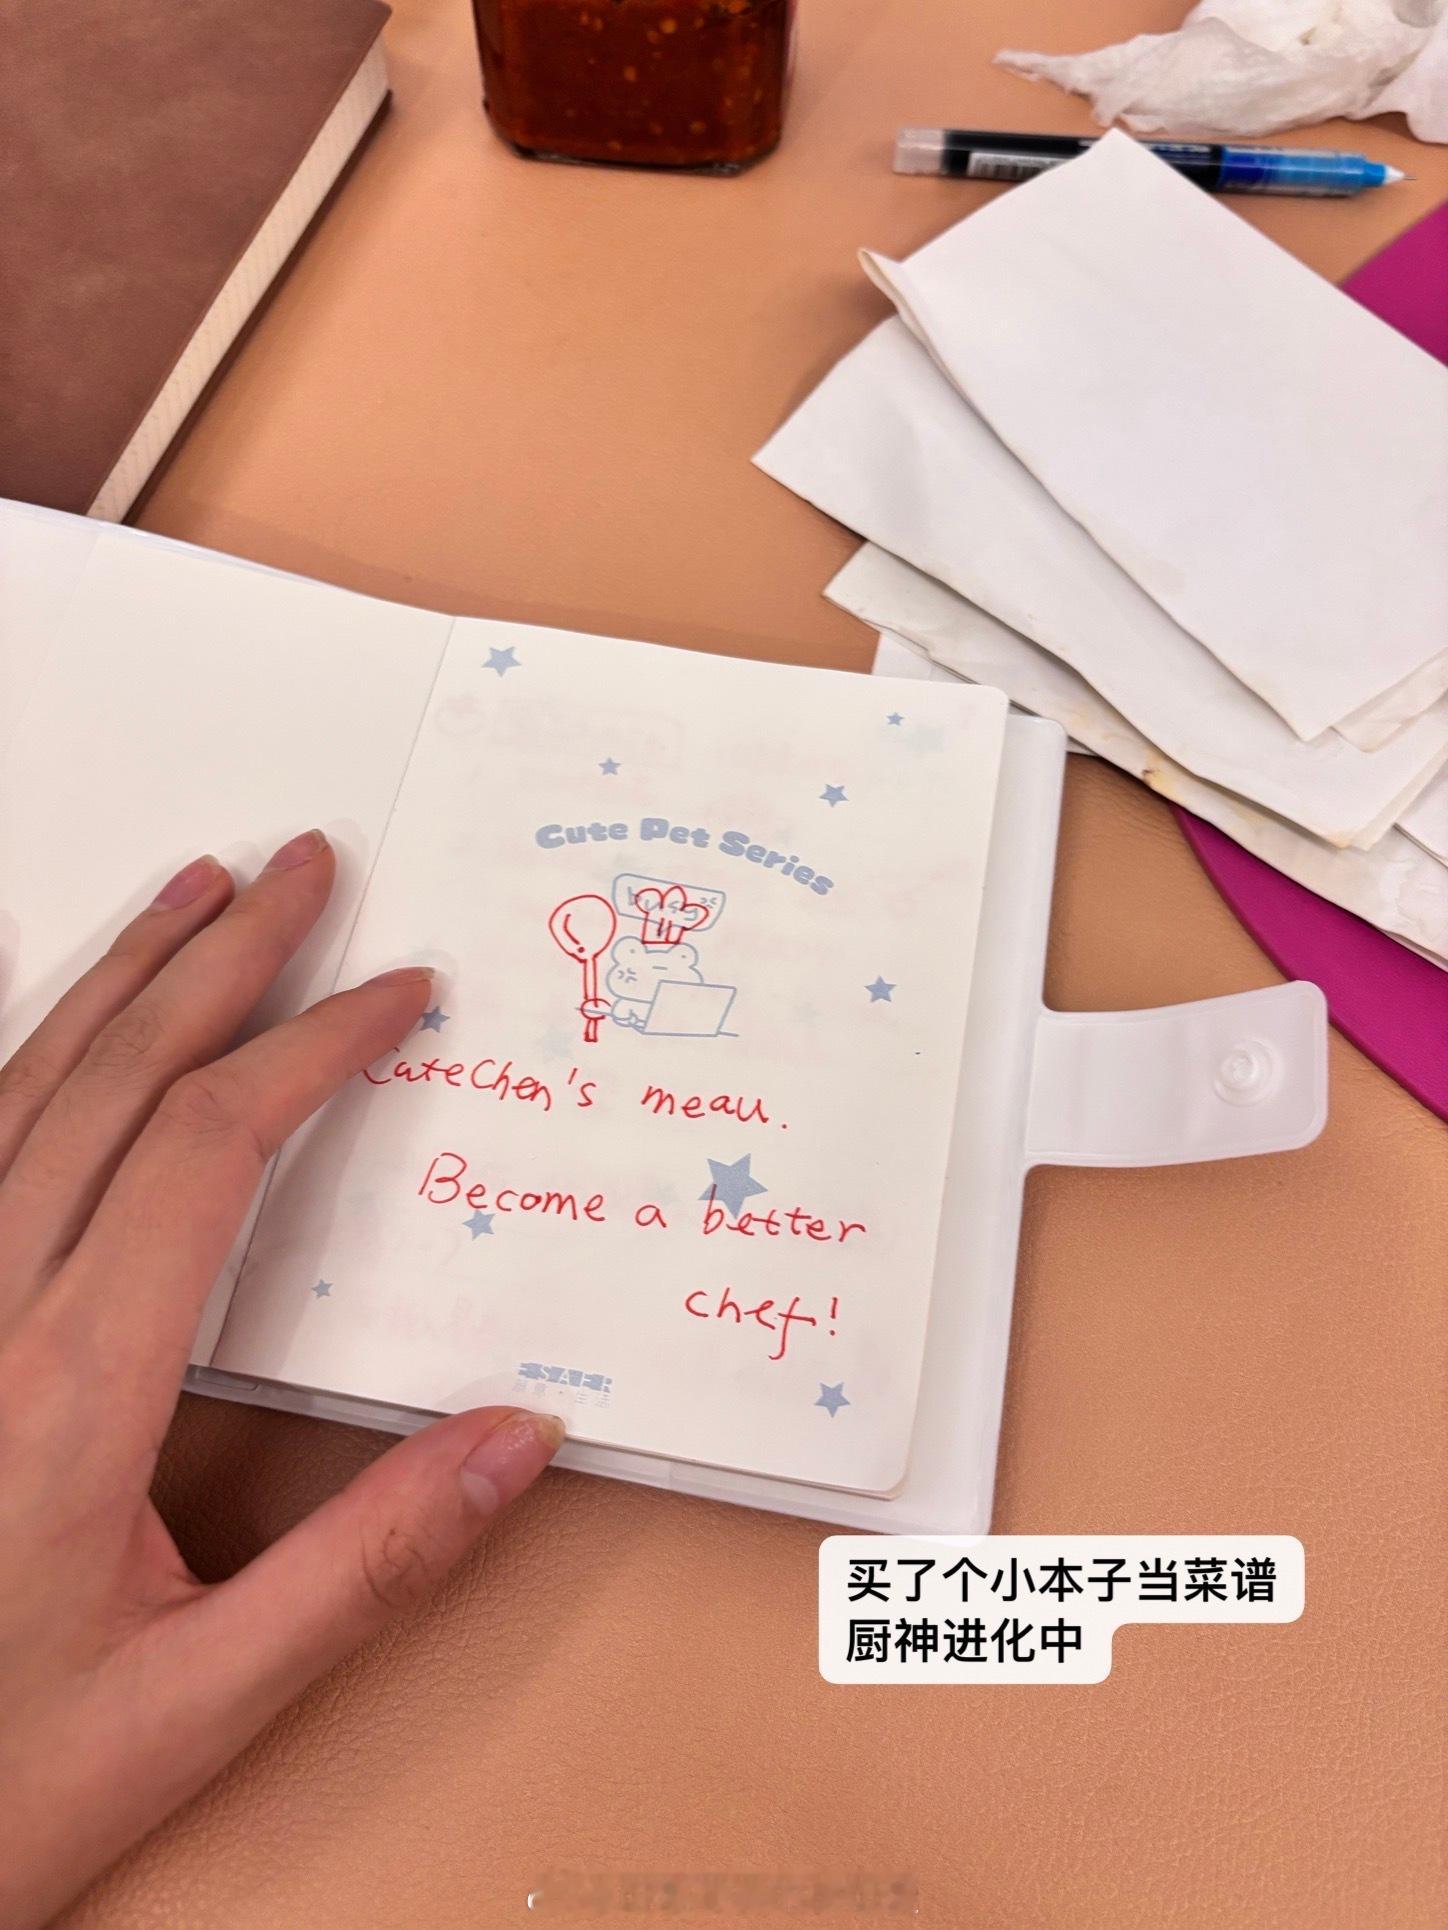 Cute Pet Series
busy
CateChen's meau.
Become a better
chef!
买了个小本子当菜谱
厨神进化中